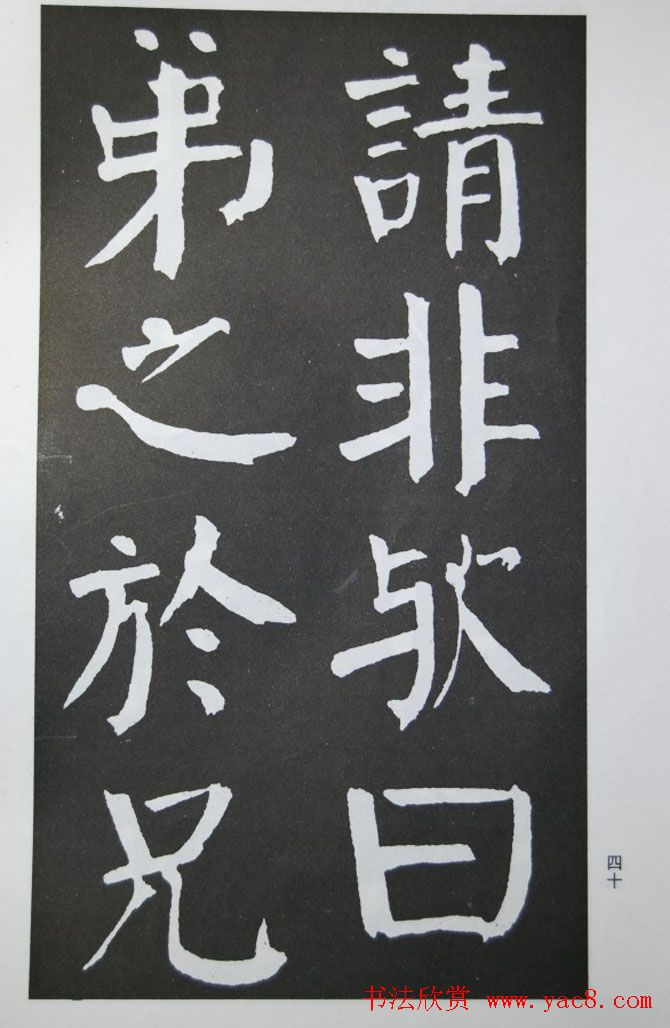 請非欤曰
弟之於兄
四十
书法欣赏 www.yac8.com